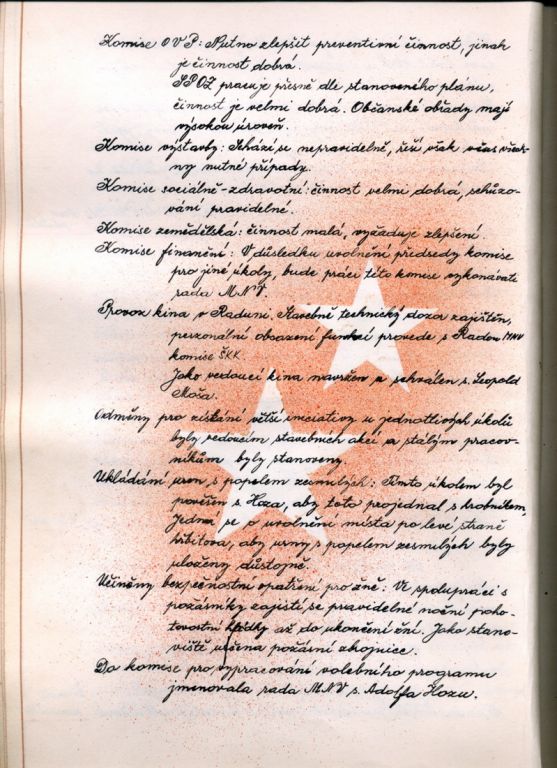 Komise OVP: Nutno zlepšit preventivní činnost, jinak
je činnost dobrá.
SPOZ pracuje přesně dle stanoveného plánu,
činnost je velmi dobrá. Občanské obřady mají
vysokou úroveň.
Komise výstavby: Schází se nepravidelně, řeší však včas všech-
ny nutné případy.
Komise sociálně-zdravotní: činnost velmi dobrá, schůzo-
vání pravidelné.
Komise zemědělská: činnost malá, vyžaduje zlepšení.
Komise finanční: V důsledku uvolnění předsedy komise
pro jiné úkoly, bude práci této komise vykonávati
rada MNV.
Provoz kina v Raduni. Stavebně technický dozor zajištěn,
personální obsazení funkcí provede s Radou MNV
komise ŠKK.
Jako vedoucí kina navržen a schválen s. Leopold
Moža.
Odměny pro získání větší iniciativy u jednotlivých úkolů
byly vedoucím stavebních akcí a stálým pracov-
níkům byly stanoveny.
Ukládání uren s popelem zesnulých: Tímto úkolem byl
pověřen s. Hoza, aby toto projednal s hrobníkem,
Jedná se o uvolnění místa po levé straně
hřbitova, aby urny s popelem zesnulých byly
uloženy důstojně.
Učiněny bezpečnostní opatření pro žně: Ve spolupráci s
požárníky zajistí se pravidelné noční poho-
tovostní hlídky až do ukončení žní. Jako stano-
viště určena požární zbrojnice.
Do komise pro vypracování volebního programu
jmenovala rada MNV s. Adolfa Hozu.